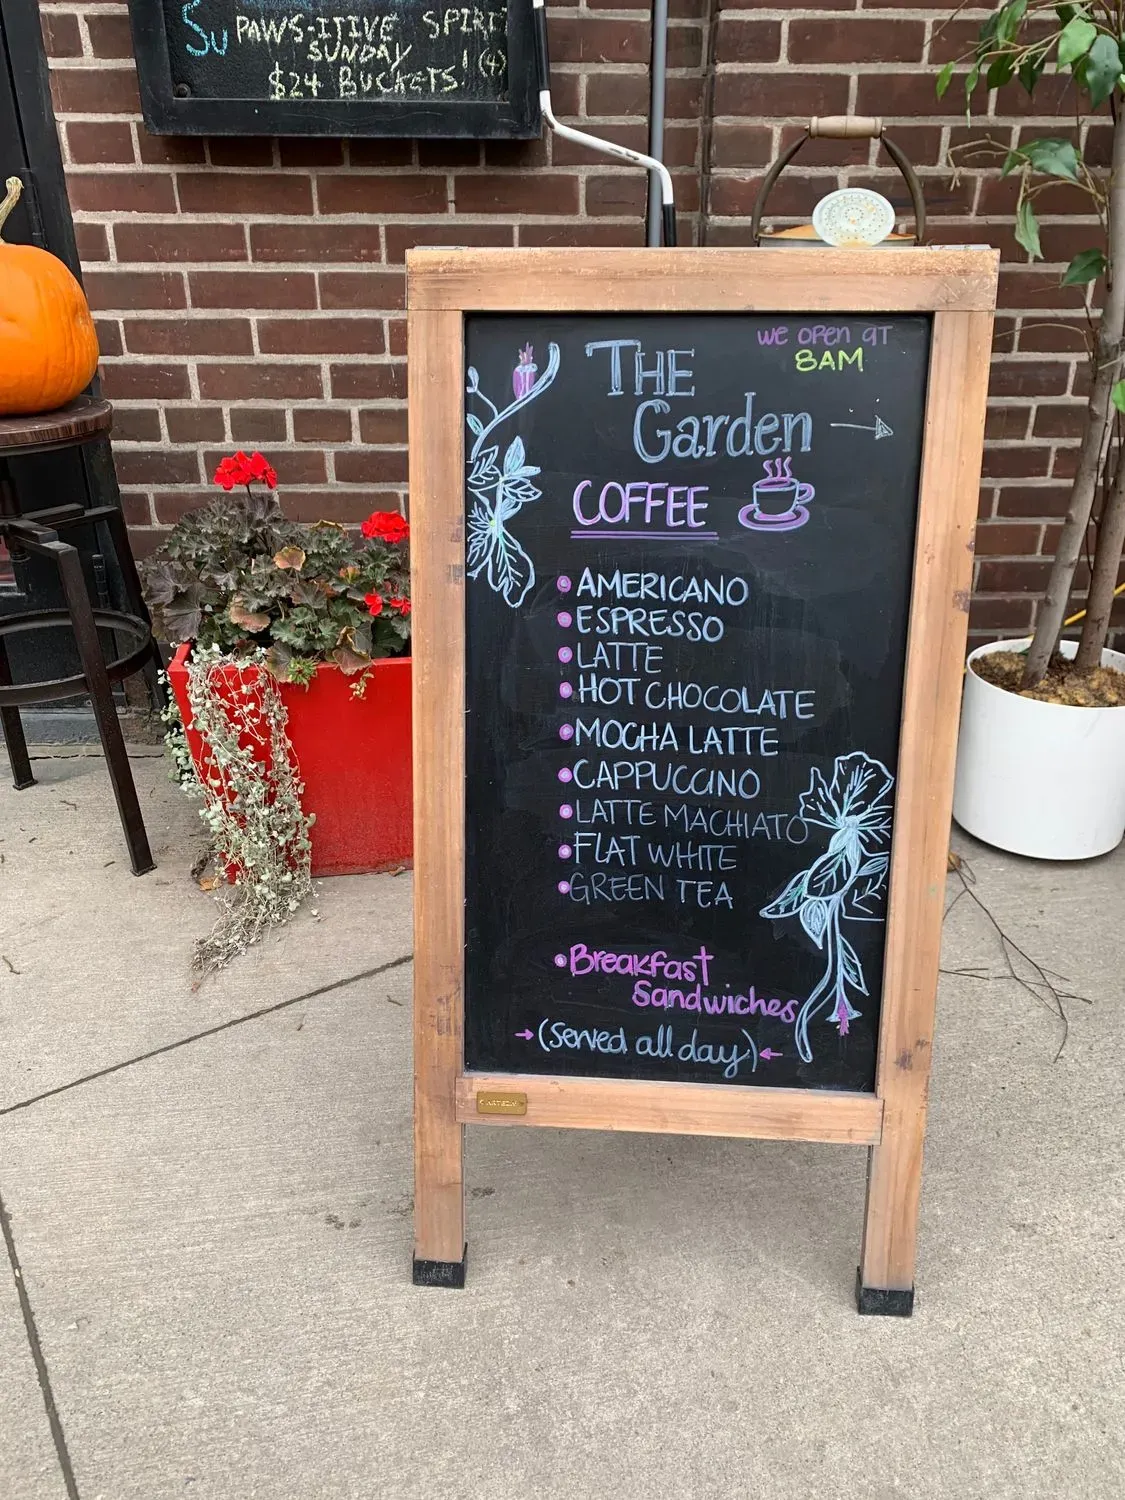 Su PAWS-ITIVE SPIRIT
SUNDAY
$24 BUCKETS! (4)
WE OPEN AT
8AM
THE
Garden
COFFEE
AMERICANO
ESPRESSO
LATTE
HOT CHOCOLATE
MOCHA LATTE
CAPPUCCINO
LATTE MACHIATO
FLAT WHITE
GREEN TEA
Breakfast
Sandwiches
(served all day)